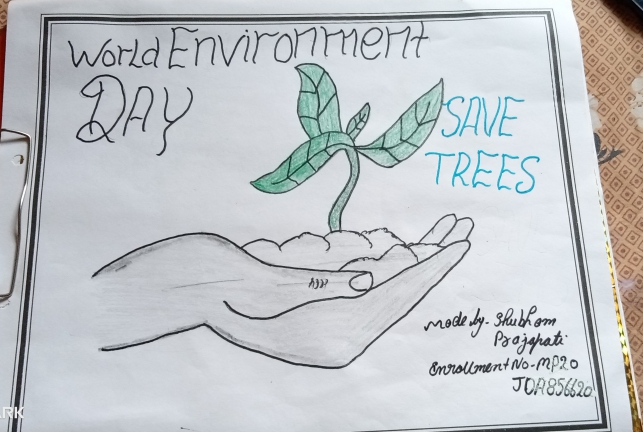 World Environment
DAY
SAVE
TREES
Made by- Shubham
Prajapati
Enrollment No-MP20
JDA856620
ARK